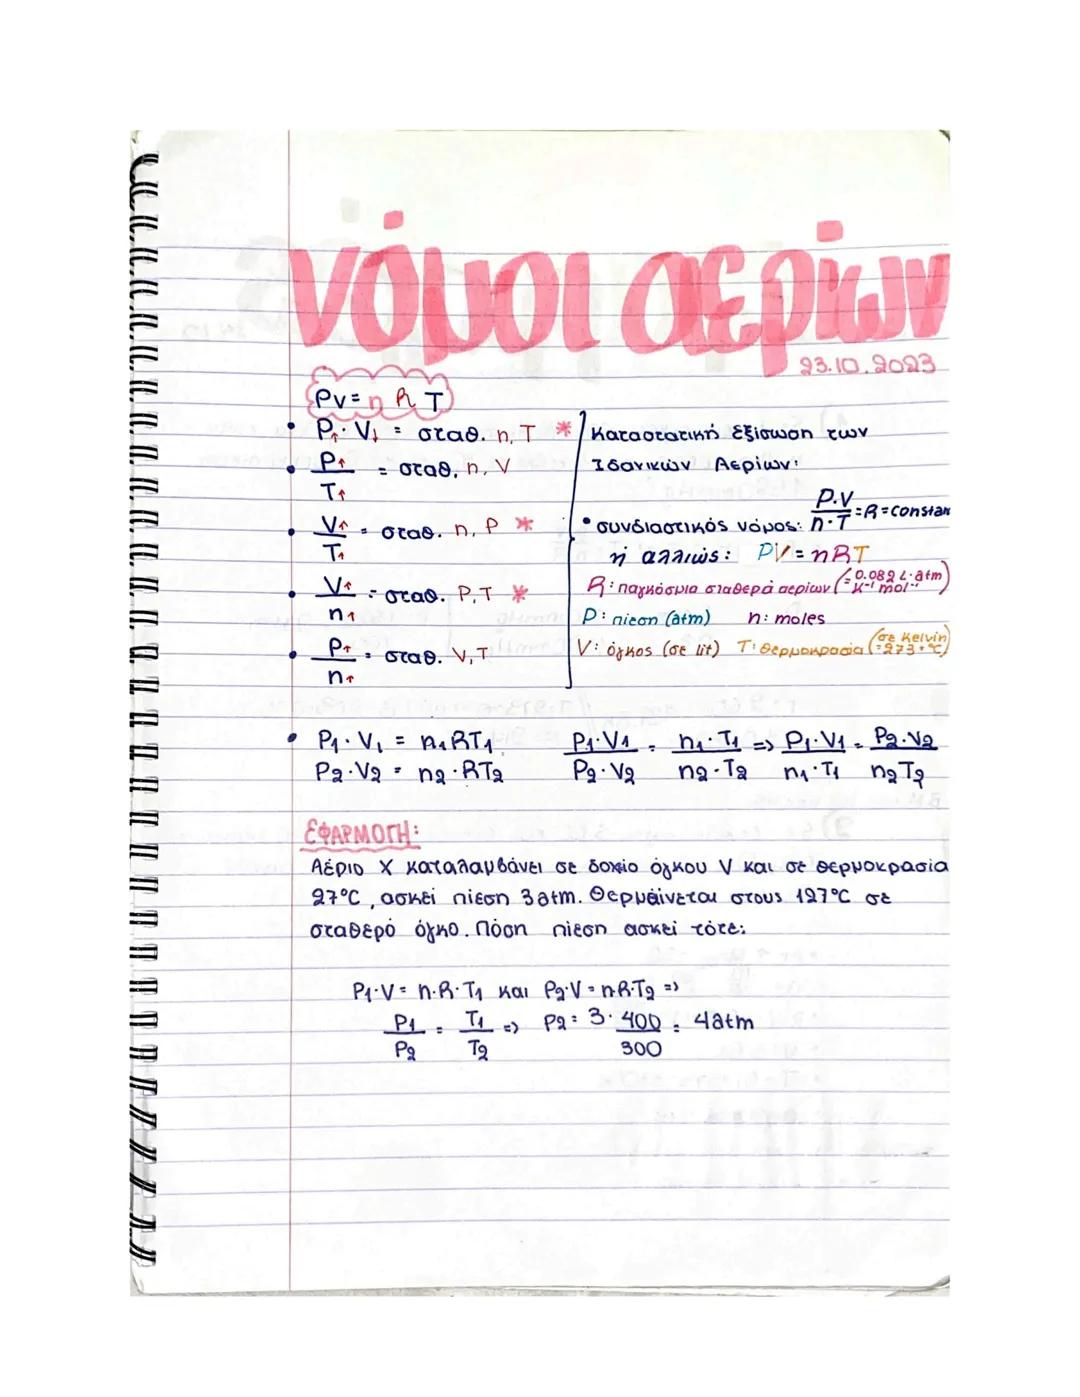 νόμοι αερίων
23.10.2023
PV = n R T
• P↑ · V↓ = σταθ. n, T *
• P↑ / T↑ = σταθ. n, V
• V↑ / T↑ = σταθ. n, P *
• V↑ / n↑ = σταθ. P, T *
• P↑ / n↑ = σταθ. V, T
Καταστατική εξίσωση των
Ιδανικών Αερίων:
• συνδιαστικός νόμος: P·V / n·T = R = constan
ή αλλιώς: PV = nRT
R: παγκόσμια σταθερά αερίων (= 0.082 L·atm / K⁻¹ mol⁻¹)
P: πίεση (atm) n: moles
V: όγκος (σε lit) T: θερμοκρασία (σε Kelvin = 273 + °C)
• P1 · V1 = n1RT1 P1·V1 / P2·V2 = n1·T1 / n2·T2 => P1·V1 / n1·T1 = P2·V2 / n2T2
P2·V2 = n2·RT2
ΕΦΑΡΜΟΓΗ:
Αέριο X καταλαμβάνει σε δοχείο όγκου V και σε θερμοκρασία
27°C, ασκεί πίεση 3atm. Θερμαίνεται στους 127°C σε
σταθερό όγκο. Πόση πίεση ασκεί τότε;
P1·V = n·R·T1 και P2·V = n·R·T2 =>
P1 / P2 = T1 / T2 => P2 = 3 · 400 / 300 = 4atm